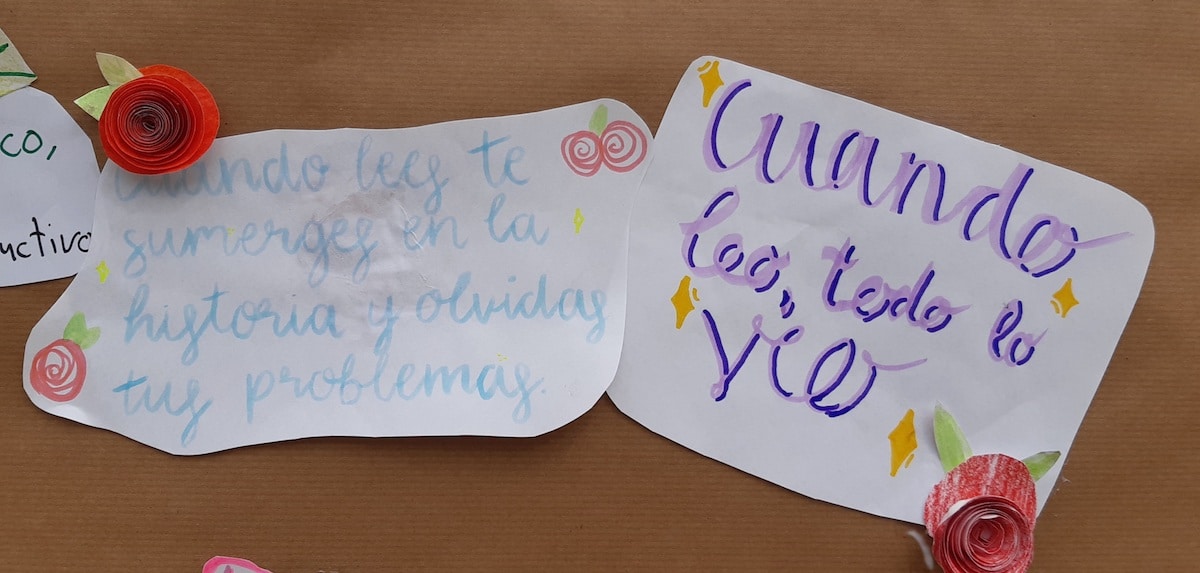 co,
uctivo
Cuando lees te
sumerges en la
historia y olvidas
tus problemas.
Cuando
leo, todo lo
Veo